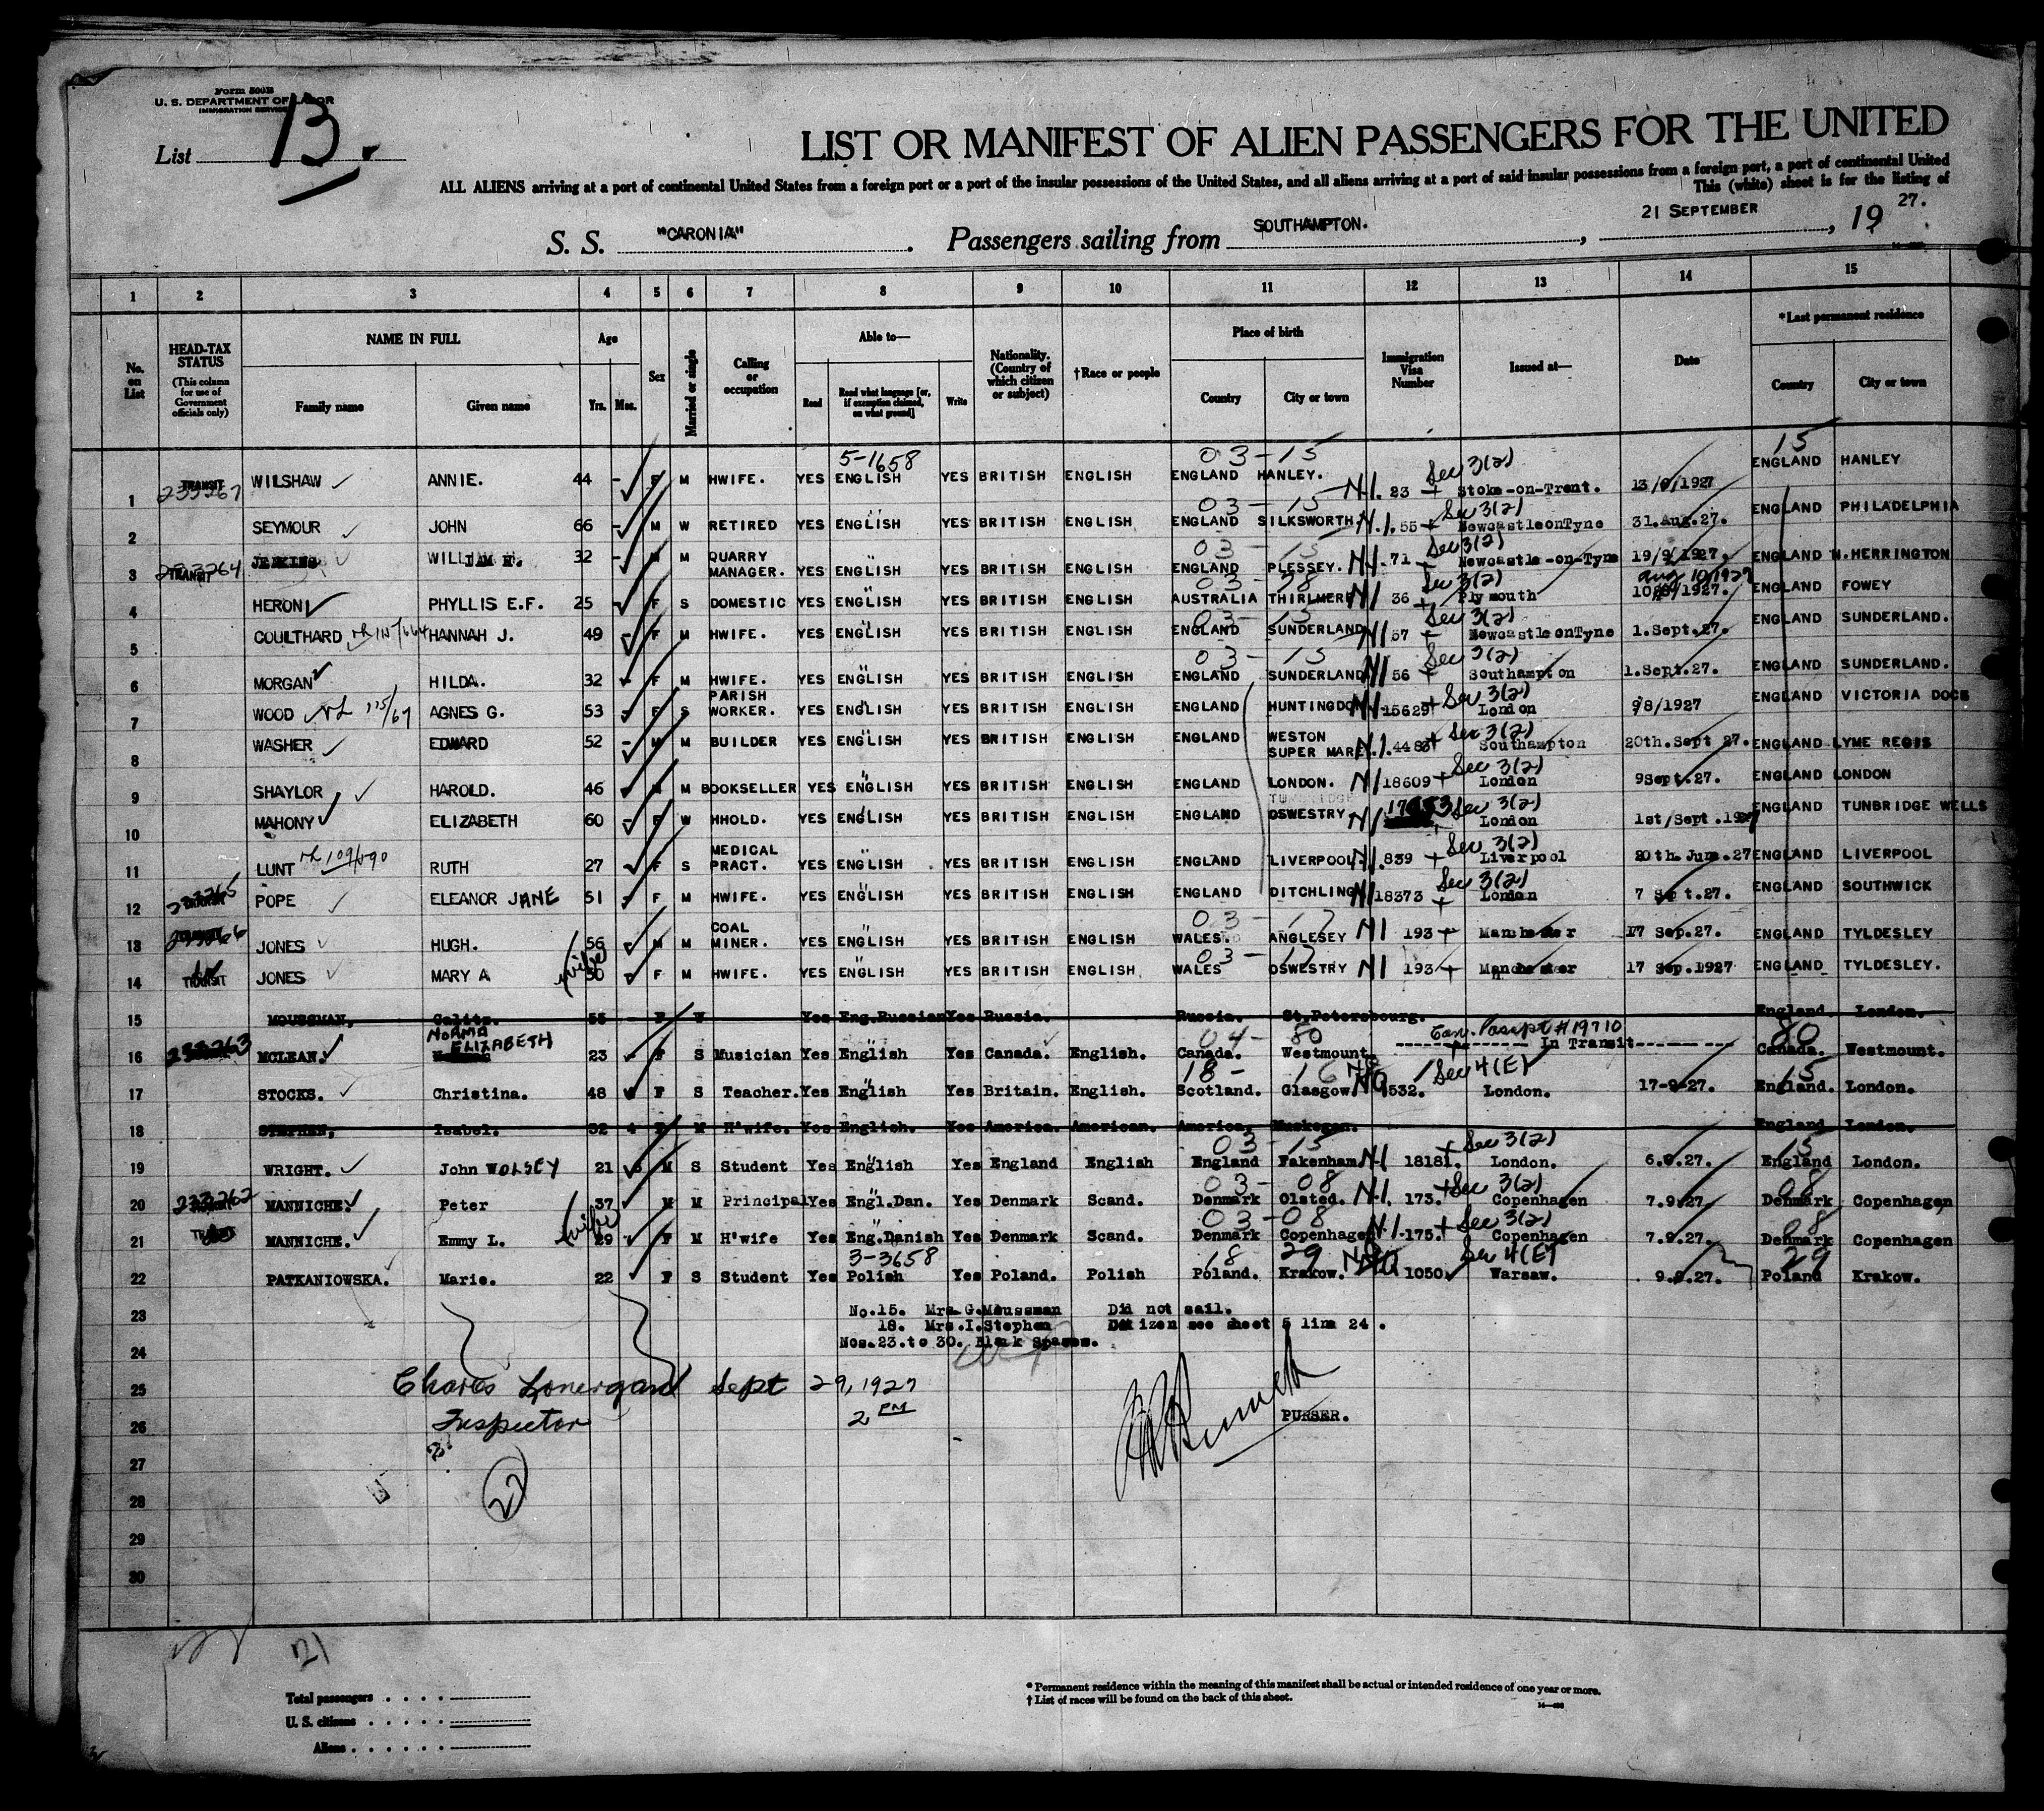 Form 500B
U. S. DEPARTMENT OF LABOR
IMMIGRATION SERVICE
List 13.
LIST OR MANIFEST OF ALIEN PASSENGERS FOR THE UNITED
ALL ALIENS arriving at a port of continental United States from a foreign port or a port of the insular possessions of the United States, and all aliens arriving at a port of said insular possessions from a foreign port, a port of continental United
This (white) sheet is for the listing of
S. S. "CARONIA" . Passengers sailing from SOUTHAMPTON. , 21 SEPTEMBER , 19 27.
1 2 3 4 5 6 7 8 9 10 11 12 13 14 15
No. on List
HEAD-TAX STATUS (This column for use of Government officials only)
NAME IN FULL Family name Given name
Age Yrs. Mos.
Sex
Married or single
Calling or occupation
Able to— Read Read what language [or, if exemption claimed, on what ground] Write
Nationality. (Country of which citizen or subject)
†Race or people
Place of birth Country City or town
Immigration Visa Number
Issued at—
Date
*Last permanent residence Country City or town
5-1658 03-15 Sec 3(2) 15
1 TRANSIT 233267 WILSHAW ANNIE. 44 - F M HWIFE. YES ENGLISH YES BRITISH ENGLISH ENGLAND HANLEY. N.I. 23 Stoke-on-Trent. 13/9/1927 ENGLAND HANLEY
03-15 Sec 3(2)
2 SEYMOUR JOHN 66 - M W RETIRED YES ENGLISH YES BRITISH ENGLISH ENGLAND SILKSWORTH N.I. 55 NewcastleonTyne 31.Aug.27. ENGLAND PHILADELPHIA
03-15 Sec 3(2)
3 TRANSIT 233264 JENKINS WILLIAM H. 32 - M M QUARRY MANAGER. YES ENGLISH YES BRITISH ENGLISH ENGLAND PLESSEY. N.I. 71 Newcastle-on-Tyne 19/9/1927. ENGLAND N.HERRINGTON
03- Sec 3(2) Aug 10/1927
4 HERON PHYLLIS E.F. 25 - F S DOMESTIC YES ENGLISH YES BRITISH ENGLISH AUSTRALIA THIRLMERE NI 36 Plymouth ENGLAND FOWEY
03-15 Sec 3(2)
5 COULTHARD HANNAH J. 49 - F M HWIFE. YES ENGLISH YES BRITISH ENGLISH ENGLAND SUNDERLAND NI 57 NewcastleonTyne 1.Sept.27. ENGLAND SUNDERLAND.
03-15 Sec 3(2)
6 MORGAN HILDA. 32 - F M HWIFE. YES ENGLISH YES BRITISH ENGLISH ENGLAND SUNDERLAND NI 56 Southampton 1.Sept.27. ENGLAND SUNDERLAND.
Sec 3(2)
7 WOOD 115/67 AGNES G. 53 - F S PARISH WORKER. YES ENGLISH YES BRITISH ENGLISH ENGLAND HUNTINGDON NI 15629 London 9/8/1927 ENGLAND VICTORIA DOCK
Sec 3(2)
8 WASHER EDWARD 52 - M M BUILDER YES ENGLISH YES BRITISH ENGLISH ENGLAND WESTON SUPER MARE N.I. 4483 Southampton 20th.Sept 27. ENGLAND LYME REGIS
Sec 3(2)
9 SHAYLOR HAROLD. 46 - M M BOOKSELLER YES ENGLISH YES BRITISH ENGLISH ENGLAND LONDON. NI 18609 London 9Sept.27. ENGLAND LONDON
Sec 3(2)
10 MAHONY ELIZABETH 60 - F W HHOLD. YES ENGLISH YES BRITISH ENGLISH ENGLAND OSWESTRY NI London 1st/Sept.1927 ENGLAND TUNBRIDGE WELLS
Sec 3(2)
11 LUNT RUTH 27 F S MEDICAL PRACT. YES ENGLISH YES BRITISH ENGLISH ENGLAND LIVERPOOL. NI. 839 Liverpool 20th.June.27 ENGLAND LIVERPOOL
Sec 3(2)
12 233265 TRANSIT POPE ELEANOR JANE 51 - F M HWIFE. YES ENGLISH YES BRITISH ENGLISH ENGLAND DITCHLING NI 18373 London 7 Sept.27. ENGLAND SOUTHWICK
03-17
13 233266 JONES HUGH. 56 - M M COAL MINER. YES ENGLISH YES BRITISH ENGLISH WALES. ANGLESEY NI 193 Manchester 17 Sep.27. ENGLAND TYLDESLEY
03-17
14 TRANSIT JONES MARY A wife 50 F M HWIFE. YES ENGLISH YES BRITISH ENGLISH WALES OSWESTRY NI 193 Manchester 17 Sep.1927 ENGLAND TYLDESLEY.
15 MOUSSMAN, 55 - F W Yes Eng.Russian Yes Russia. Russia. St.Petersbourg. England London.
NORMA ELIZABETH 04-80 Can. Passpt #19710 80
16 233263 MCLEAN. 23 - F S Musician Yes English Yes Canada. English. Canada. Westmount. In Transit Canada. Westmount.
18- Sec 4(E) 15
17 STOCKS. Christina. 48 F S Teacher. Yes English Yes Britain. English. Scotland. Glasgow. NQ 532. London. 17-9-27. England. London.
18 STEPHEN, Isabel. 32 F M H'wife. Yes English. Yes America. American. America. Muskegon. England London.
03-15 Sec 3(2) 15
19 WRIGHT. John WOLSEY 21 M S Student Yes English Yes England English England Fakenham. NI 18181. London. 6.9.27. England London.
03-08 Sec 3(2) 08
20 233262 MANNICHE. Peter 37 M M Principal Yes Engl.Dan. Yes Denmark Scand. Denmark Olsted. N.I. 173. Copenhagen 7.9.27 Denmark Copenhagen
03-08 Sec 3(2) 08
21 MANNICHE. Emmy L. wife 29 F M H'wife Yes Eng.Danish Yes Denmark Scand. Denmark Copenhagen N.I. 175. Copenhagen 7.9.27. Denmark Copenhagen
3-3658 18 29 Sec 4(E) 29
22 PATKANIOWSKA. Marie. 22 F S Student Yes Polish Yes Poland. Polish Poland. Krakow. NQ 1050 Warsaw. 9.9.27. Poland Krakow.
23 No.15. Mrs.G.Moussman Did not sail.
18. Mrs.I.Stephen Citizen see sheet 5 line 24.
24 Nos.23.to 30. Blank Spaces.
25 Charles Lonergan Sept 29, 1927
26 Inspector 2 PM PURSER.
27
28 22
29
30
21
Total passengers
U. S. citizens
Aliens
* Permanent residence within the meaning of this manifest shall be actual or intended residence of one year or more.
† List of races will be found on the back of this sheet.